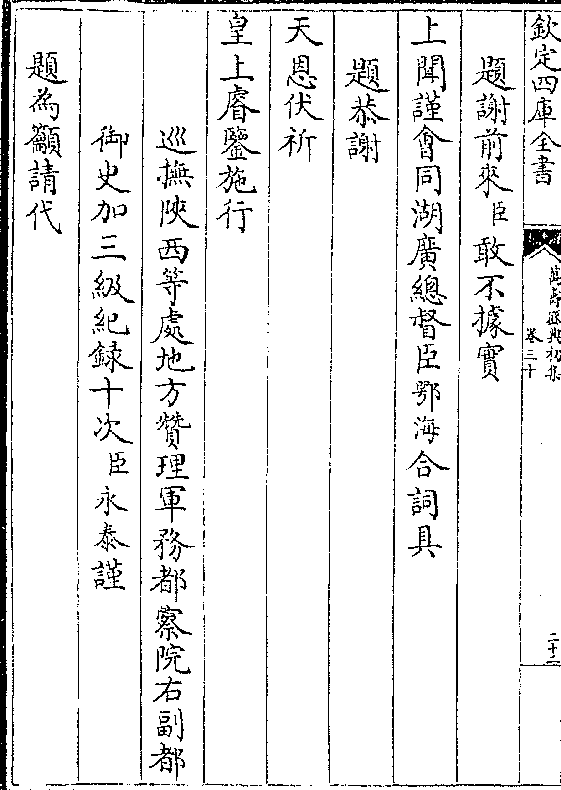 欽定四庫全書
萬壽盛典初集
卷三十
二十二
題謝前來臣敢不據實
上聞謹會同湖廣總督臣鄂海合詞具
題恭謝
天恩伏祈
皇上睿鑒施行
巡撫陜西等處地方贊理軍務都察院右副都
御史加三級紀録十次臣永泰謹
題為籲請代